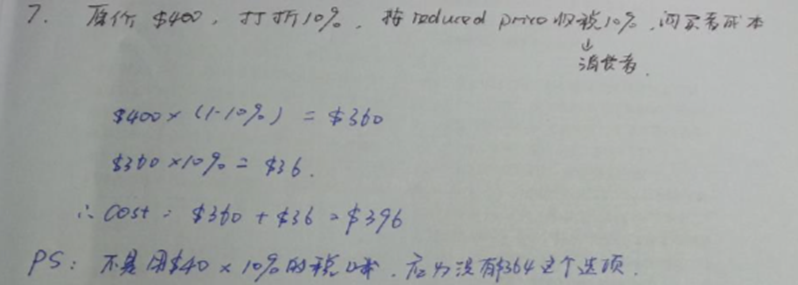 7. 原价 $400，打折10%，按 reduced price 收税10%，问买者成本
↓
消费者.
$400 × (1-10%) = $360
$360 ×10% = $36.
∴ cost = $360 + $36 = $396
PS: 不是用$40 × 10% 的税哦，因为没有$364这个选项.